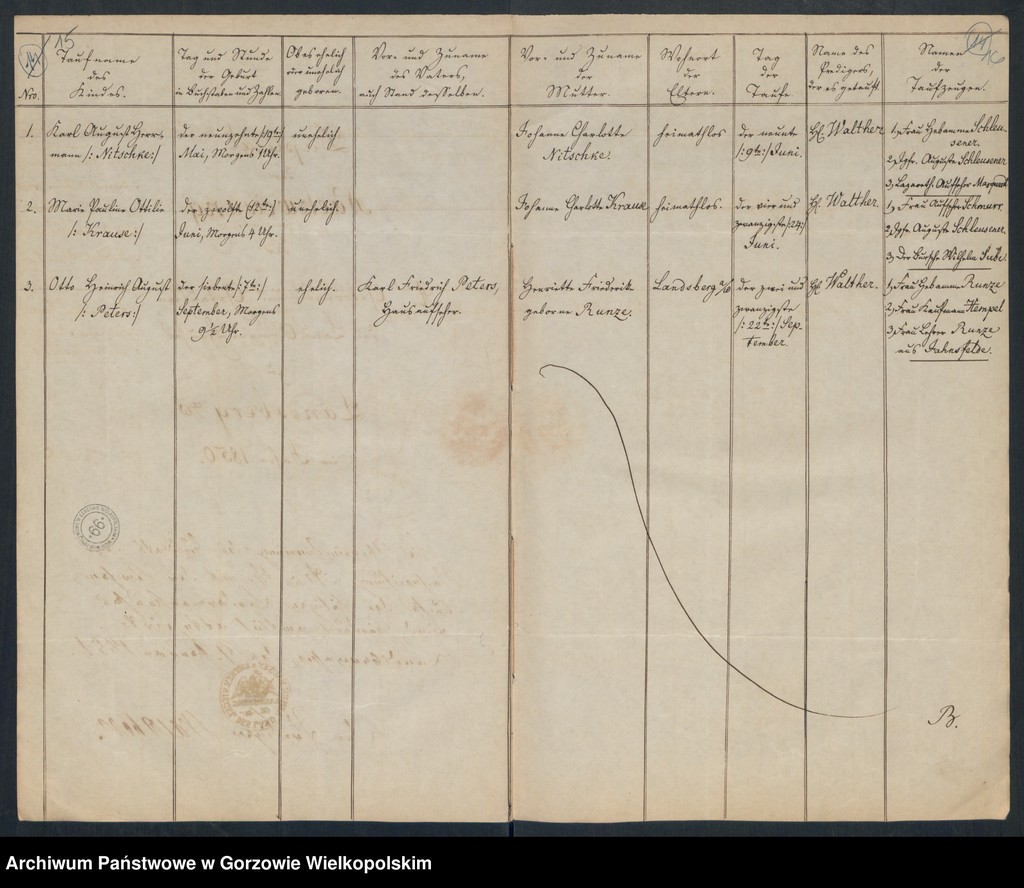 15
14
16
Nro.
Taufname
des
Kindes.
Tag und Stunde
der Geburt
in Buchstaben und Zahlen
Ob es ehelich
oder unehelich
geboren.
Vor- und Zuname
des Vaters,
auch Stand desselben.
Vor- und Zuname
der
Mutter.
Wohnort
der
Eltern.
Tag
der
Taufe.
Name des
Predigers,
der es getauft.
Namen
der
Taufzeugen.
1.
Karl August Herr-
mann /: Nitschke :/
der neunzehnte /: 19te :/
Mai, Morgens 1 Uhr.
unehelich
Johanne Charlotte
Nitschke.
heimathlos
der neunte
/: 9te :/ Juni.
Walther
1, Frau Hebamme Schleu-
sener.
2, Jgfr. Auguste Schleusener
3, Lazareth-Aufseher
2.
Marie Pauline Ottilie
/: Krause :/
der zwölfte /: 12te :/
Juni, Morgens 4 Uhr.
unehelich.
Johanne Charlotte Krause
heimathlos.
der vier und
zwanzigste /: 24 :/
Juni.
Walther.
1, Frau Aufseher Schmurr.
2, Jgfr. Auguste Schleusener.
3, Der Bursche Wilhelm
3.
Otto Heinrich August
/: Peters :/
der siebente /: 7te :/
September, Morgens
9½ Uhr.
ehelich.
Karl Friedrich Peters,
Hausaufseher.
Henriette Friederike
geborne Runze.
Landsberg a/W
der zwei und
zwanzigste
/: 22te :/ Sep-
tember.
Walther.
1, Frau Hebamme Runze
2, Frau Kaufmann Hempel
3, Frau Lehrer Runze
aus Jahnsfelde.
66
B.
Archiwum Państwowe w Gorzowie Wielkopolskim